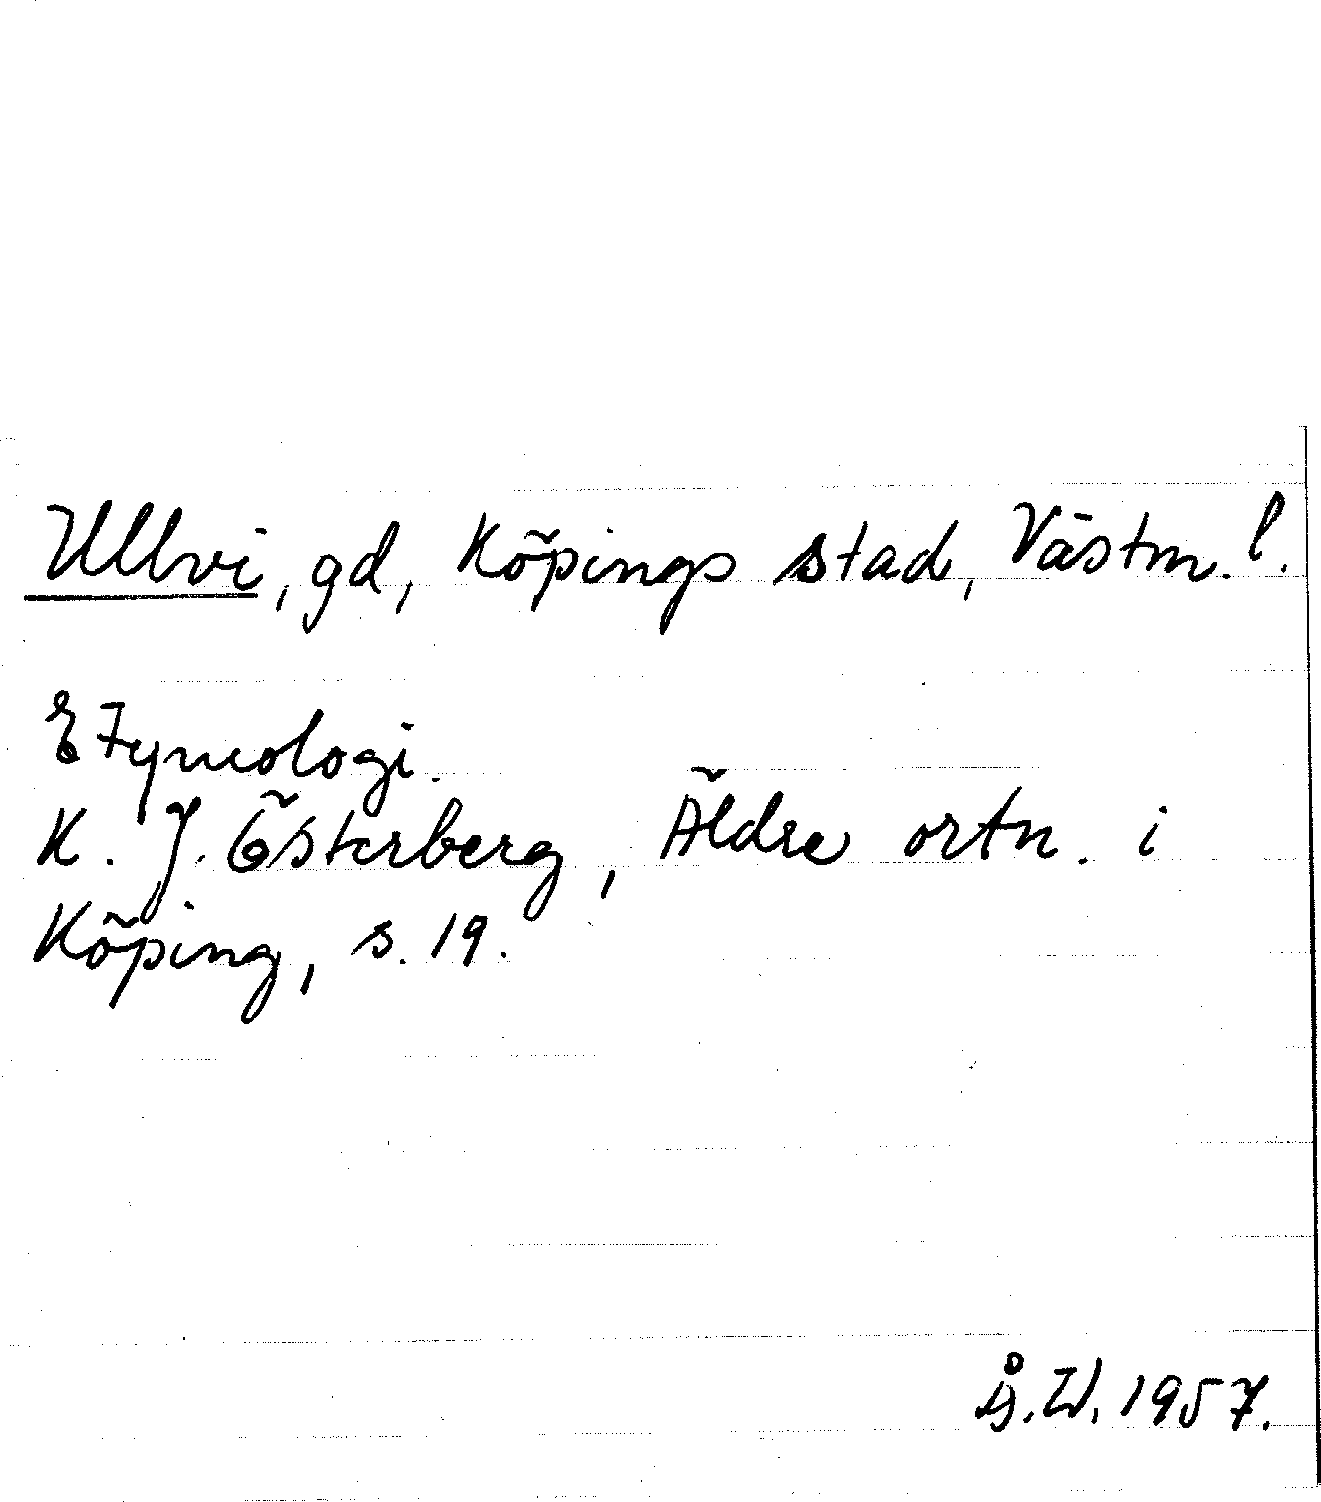 Ullvi, gd, Köpings stad, Västm. l.
Etymologi.
K. J. Österberg, Äldre ortn. i
Köping, s. 19.
Å.W. 1957.